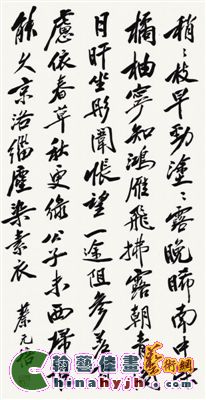 稍〻枝早勁塗〻露晚晞南中榮
橘柚寧知鴻雁飛拂露朝青
日旰坐彤闈悵望一途阻參差百
慮依春草秋更綠公子未西歸誰
能久京洛緇塵染素衣
蔡元培
藝術網
chinahyjh.com